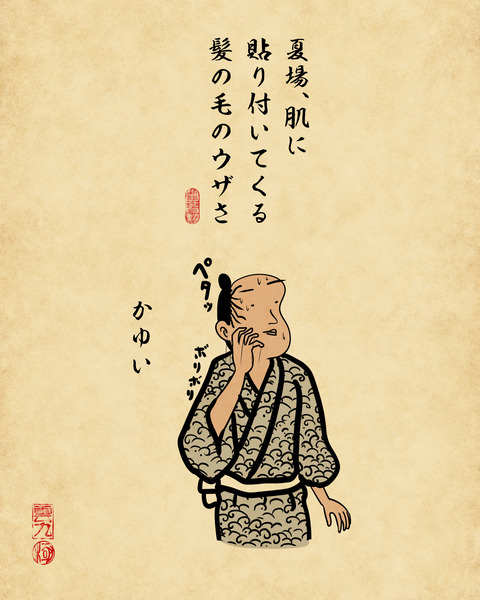 夏場、肌に
貼り付いてくる
髪の毛のウザさ
ペタッ
ボリボリ
かゆい